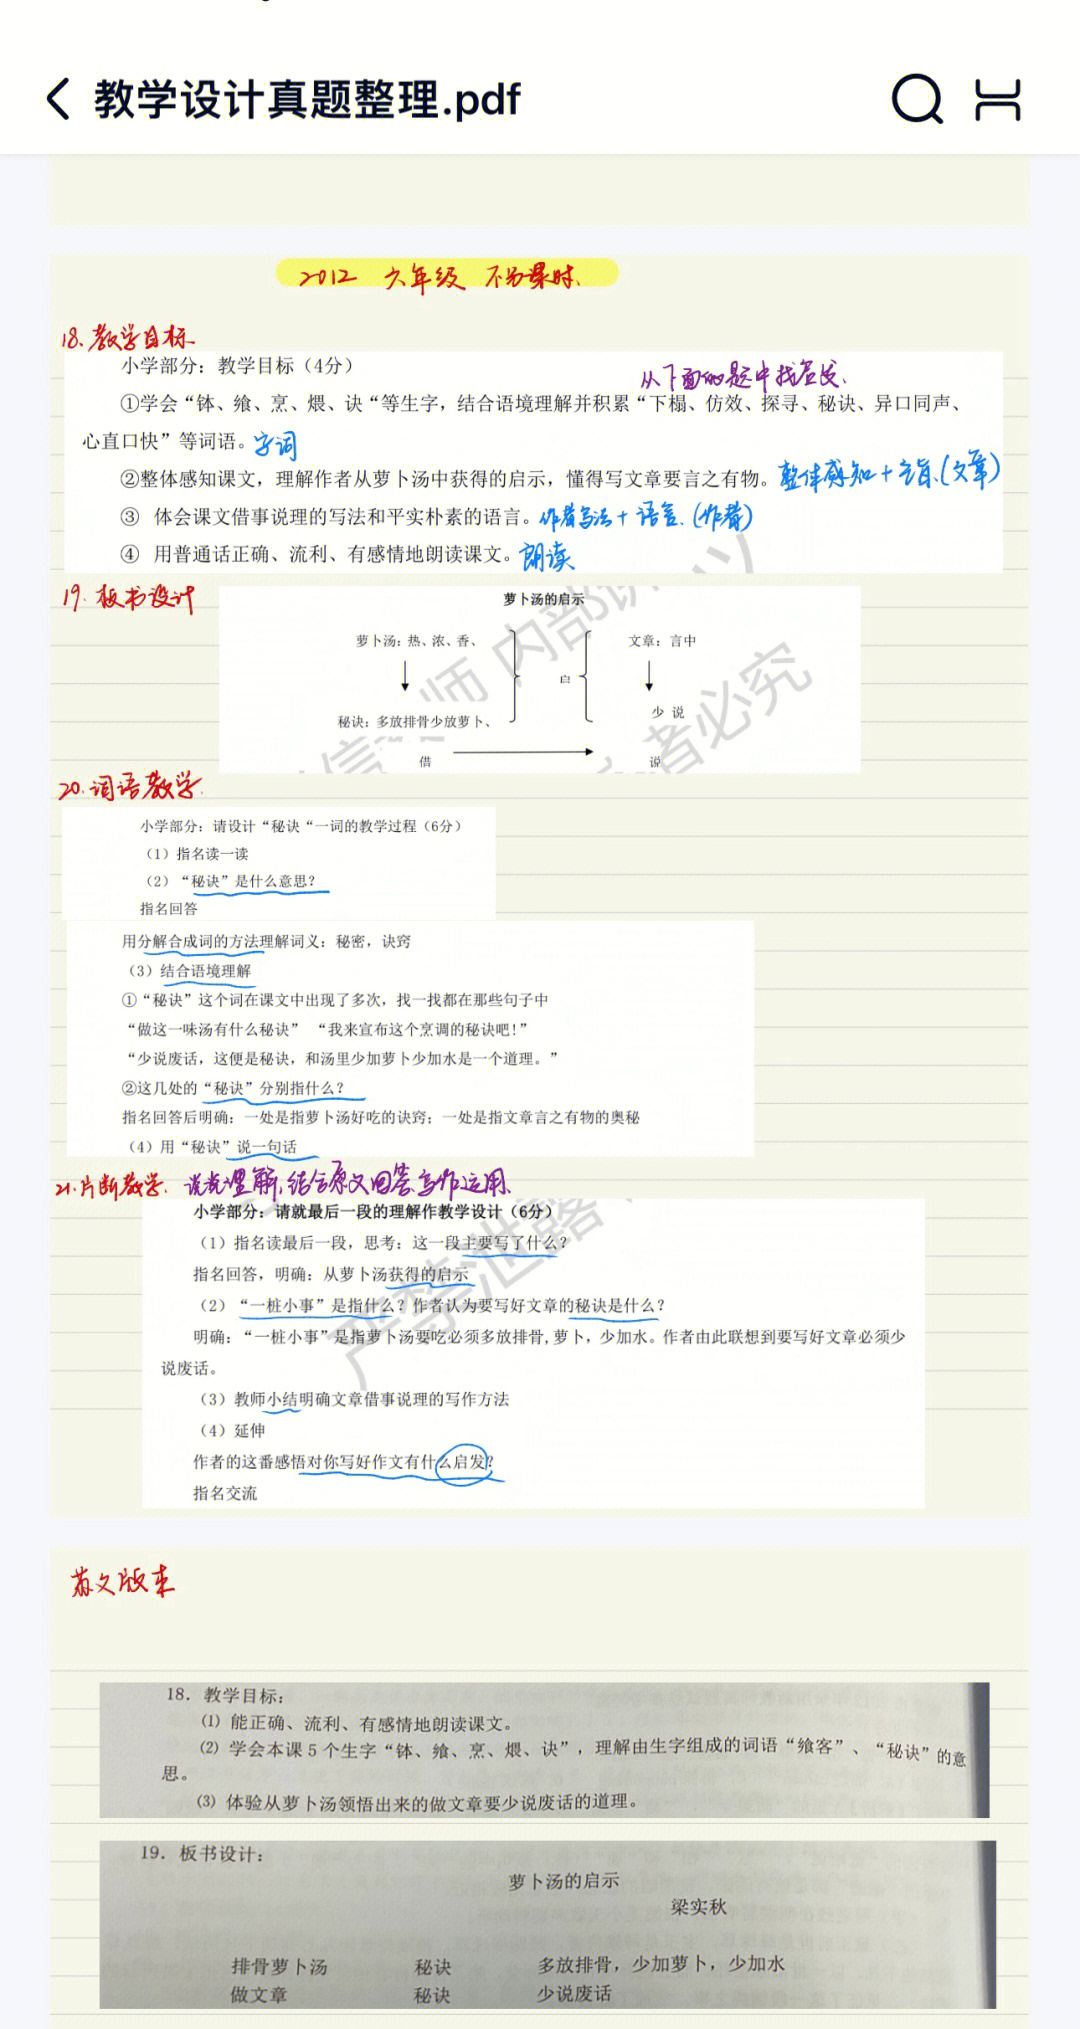 教学设计真题整理.pdf
2012 六年级 不分课时.
18.教学目标
小学部分：教学目标（4分）
从下面的题中找答案.
①学会“钵、飨、烹、煨、诀“等生字，结合语境理解并积累“下榻、仿效、探寻、秘诀、异口同声、
心直口快”等词语。字词
②整体感知课文，理解作者从萝卜汤中获得的启示，懂得写文章要言之有物。整体感知+主旨.(文章)
③ 体会课文借事说理的写法和平实朴素的语言。作者写法+语言.(作者)
④ 用普通话正确、流利、有感情地朗读课文。朗读
19.板书设计
萝卜汤的启示
萝卜汤：热、浓、香、 文章：言中
启
秘诀：多放排骨少放萝卜、 少 说
借 说
20.词语教学.
小学部分：请设计“秘诀“一词的教学过程（6分）
（1）指名读一读
（2）“秘诀”是什么意思？
指名回答
用分解合成词的方法理解词义：秘密，诀窍
（3）结合语境理解
①“秘诀”这个词在课文中出现了多次，找一找都在那些句子中
“做这一味汤有什么秘诀” “我来宣布这个烹调的秘诀吧！”
“少说废话，这便是秘诀，和汤里少加萝卜少加水是一个道理。”
②这几处的“秘诀”分别指什么？
指名回答后明确：一处是指萝卜汤好吃的诀窍；一处是指文章言之有物的奥秘
（4）用“秘诀”说一句话
21.片断教学. 说说理解.结合原文回答.写作运用.
小学部分：请就最后一段的理解作教学设计（6分）
（1）指名读最后一段，思考：这一段主要写了什么？
指名回答，明确：从萝卜汤获得的启示
（2）“一桩小事”是指什么？作者认为要写好文章的秘诀是什么？
明确：“一桩小事”是指萝卜汤要吃必须多放排骨,萝卜，少加水。作者由此联想到要写好文章必须少
说废话。
（3）教师小结明确文章借事说理的写作方法
（4）延伸
作者的这番感悟对你写好作文有什么启发？
指名交流
严禁泄露
者必究
苏文版本
18．教学目标：
⑴ 能正确、流利、有感情地朗读课文。
⑵ 学会本课 5 个生字“钵、飨、烹、煨、诀”，理解由生字组成的词语“飨客”、“秘诀”的意
思。
⑶ 体验从萝卜汤领悟出来的做文章要少说废话的道理。
19．板书设计：
萝卜汤的启示
梁实秋
排骨萝卜汤 秘诀 多放排骨，少加萝卜，少加水
做文章 秘诀 少说废话